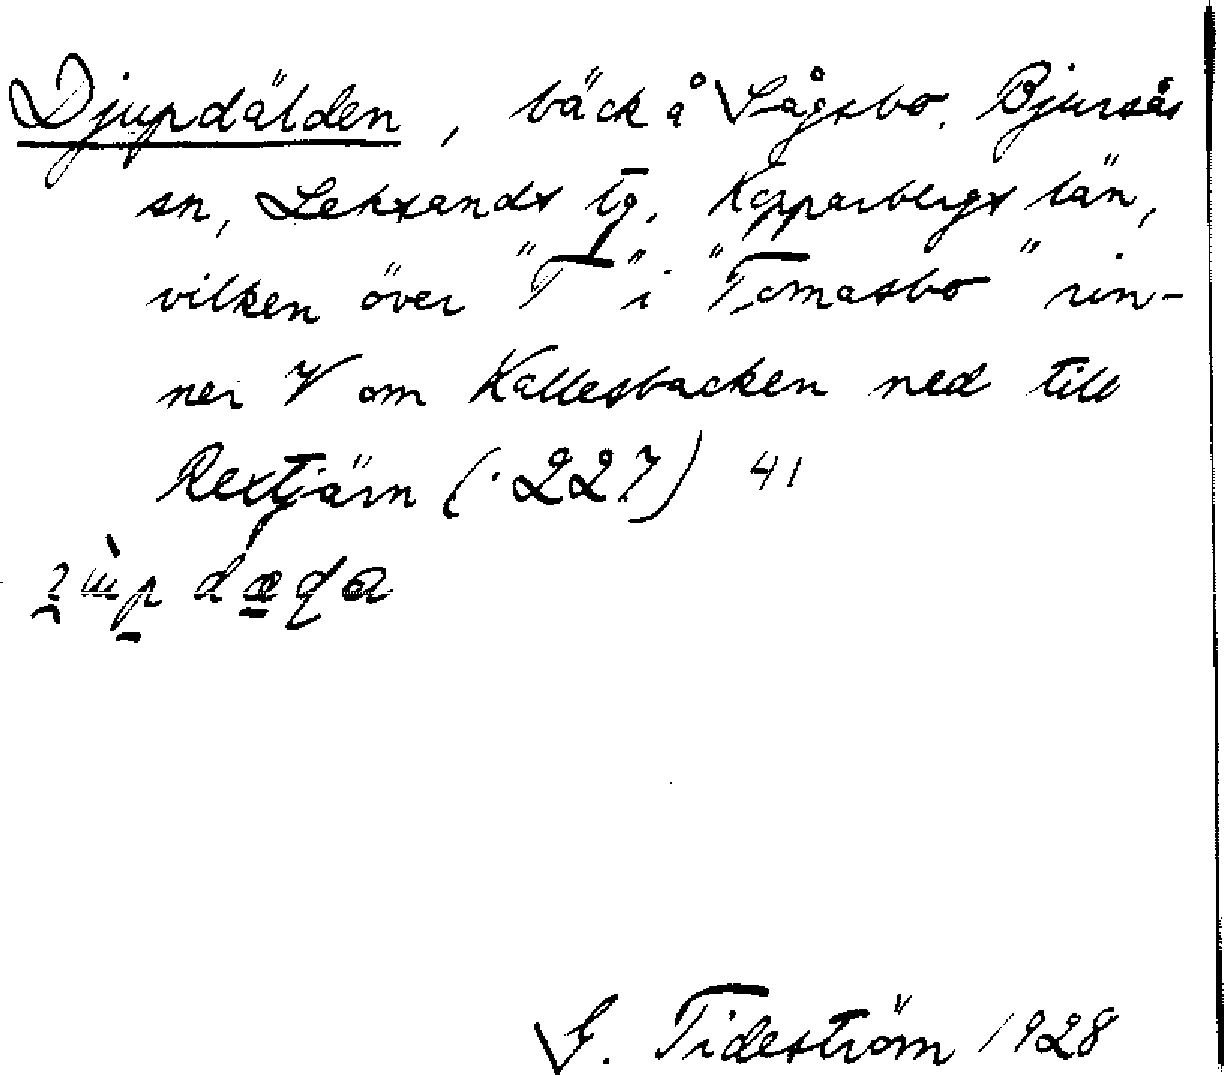 Djupdälden, bäck å Lågsbo. Bjursås
sn, Leksands tg. Kopparbergs län,
vilken över "T" i "Tomasbo" rin-
ner V om Kallesbacken ned till
Rextjärn (·227) 41
G. Tideström 1928